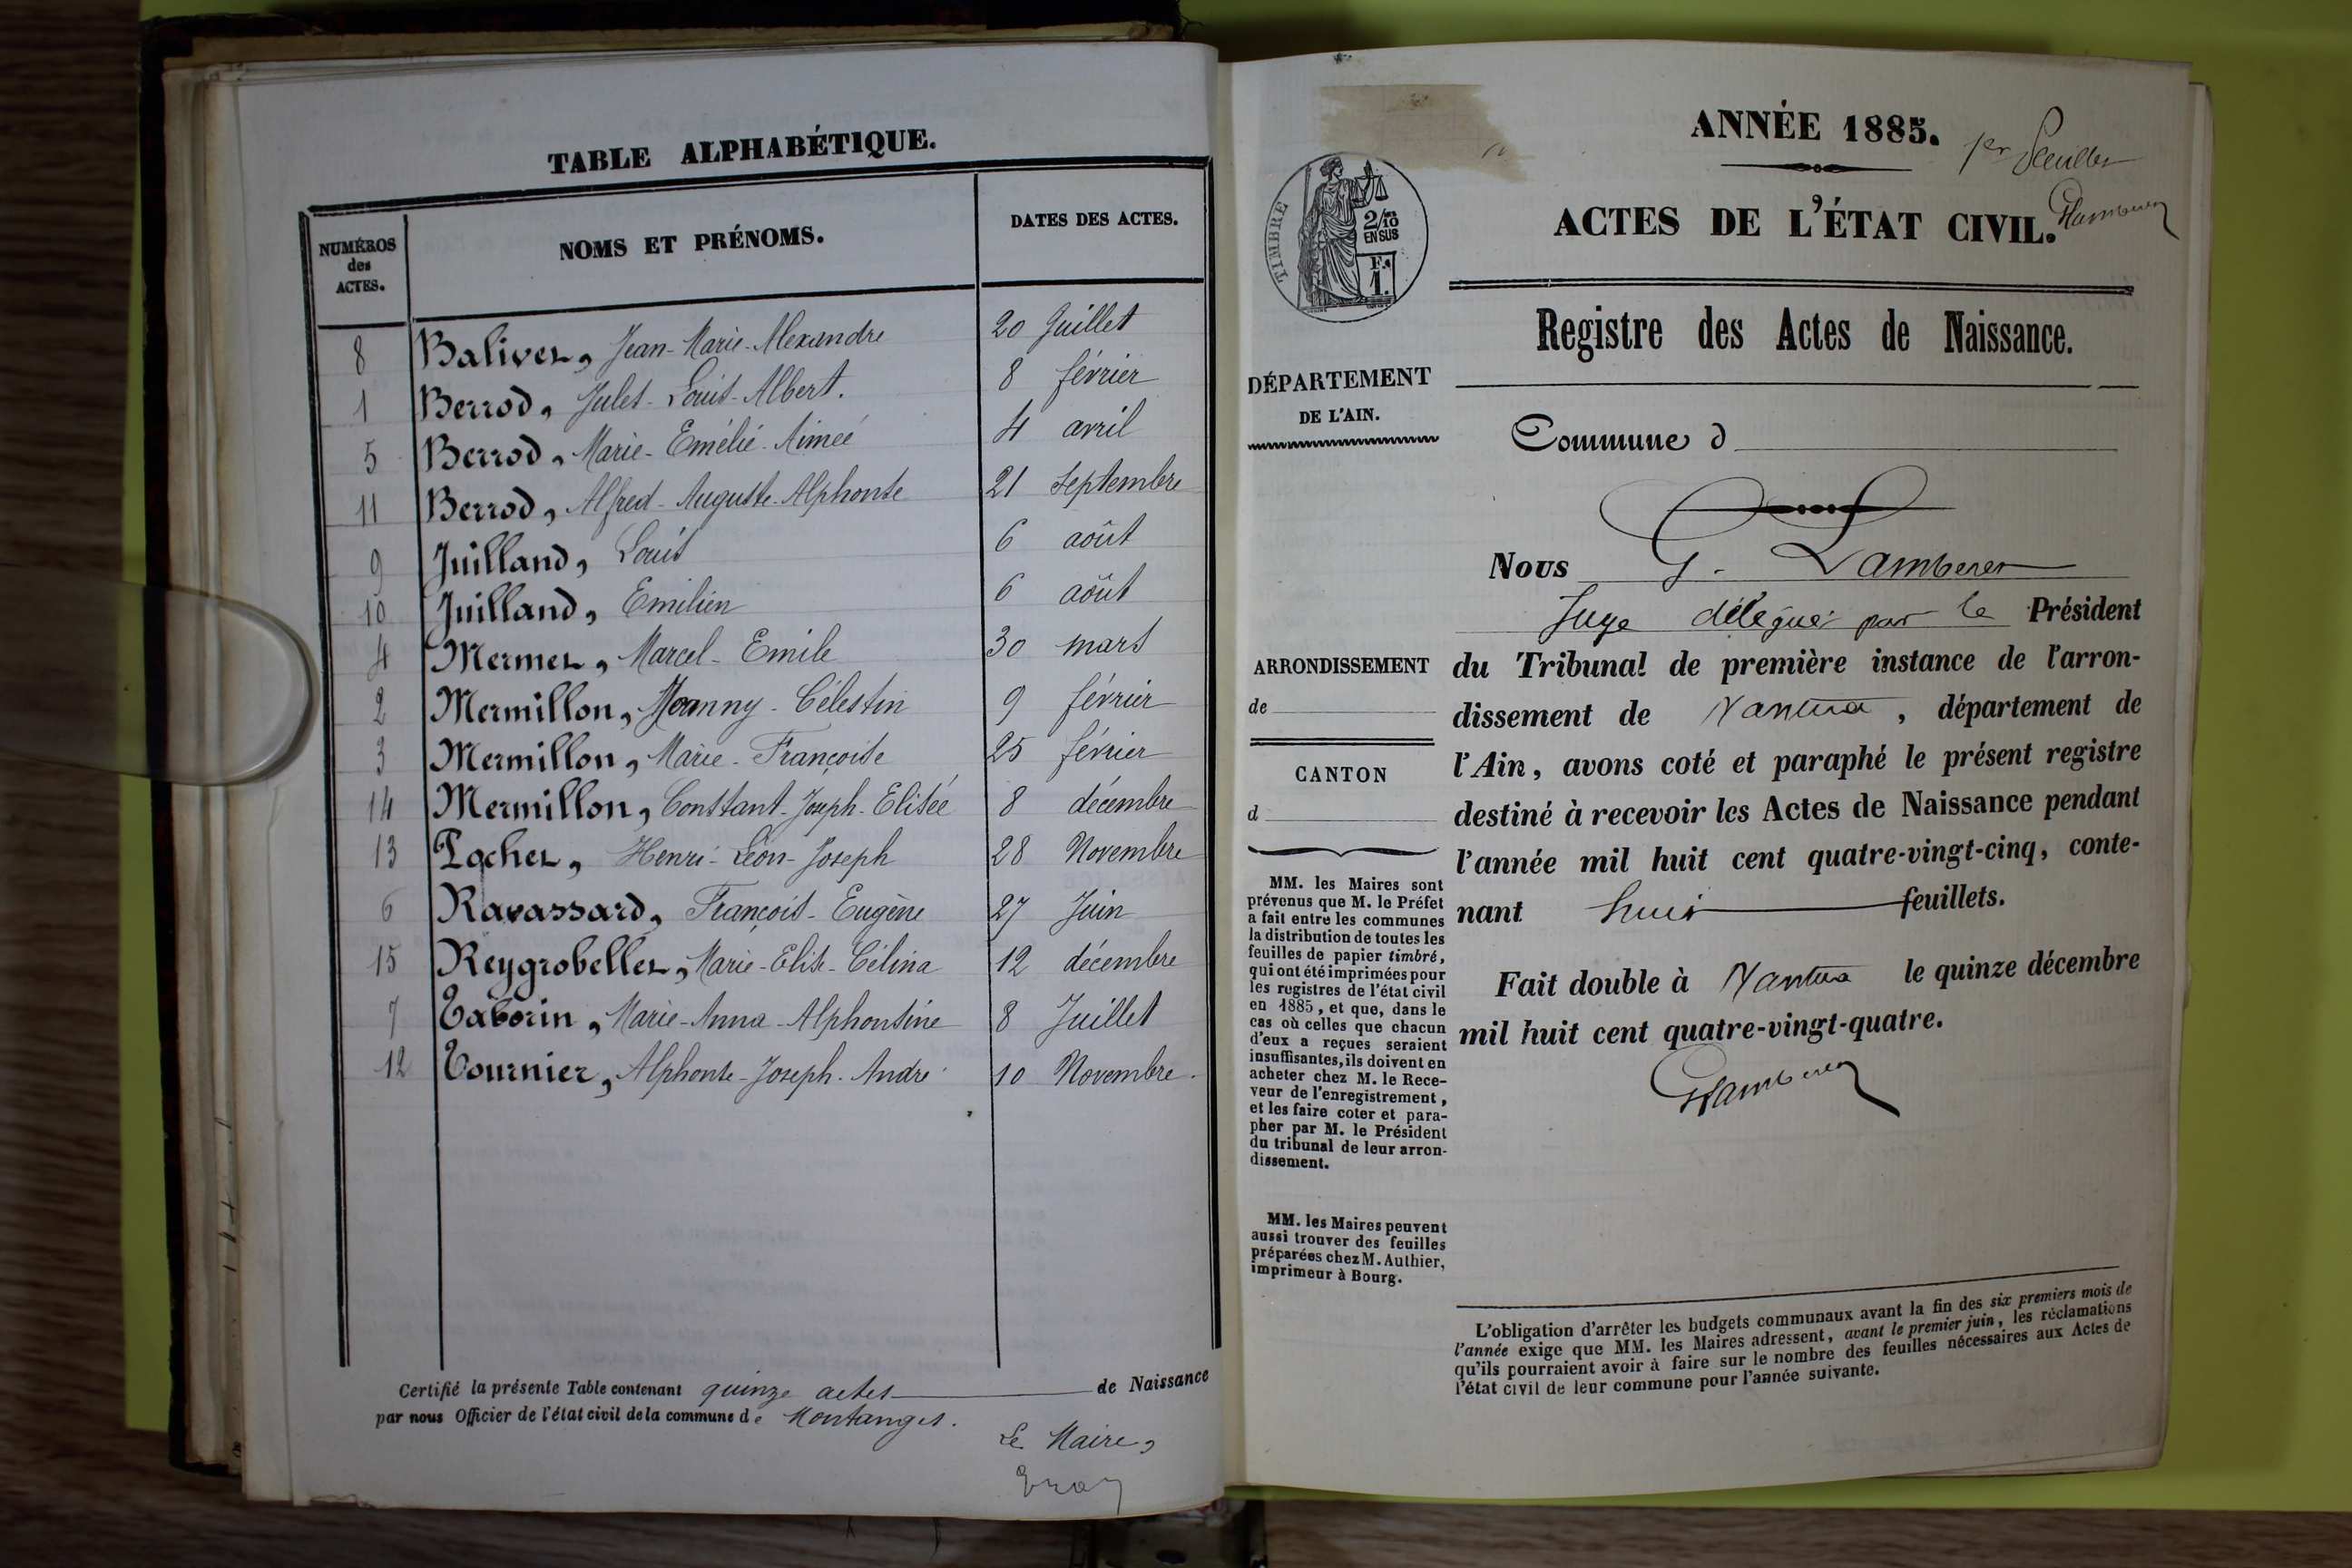 TABLE ALPHABÉTIQUE.
NUMÉROS des ACTES. NOMS ET PRÉNOMS. DATES DES ACTES.
8 Balivet, Jean-Marie-Alexandre 20 Juillet
1 Berrod, Jules-Louis-Albert. 8 février
5 Berrod, Marie-Emélie-Aimeé 4 avril
11 Berrod, Alfred-Auguste-Alphonse 21 Septembre
9 Juilland, Louis 6 août
10 Juilland, Emilien 6 août
4 Mermet, Marcel-Emile 30 mars
2 Mermillon, Joanny-Célestin 9 février
3 Mermillon, Marie-Françoise 25 février
14 Mermillon, Constant-Joseph-Elisée 8 décembre
13 Pochet, Henri-Léon-Joseph 28 Novembre
6 Ravassard, François-Eugène 27 Juin
15 Reygrobellet, Marie-Elise-Célina 12 décembre
7 Taborin, Marie-Anna-Alphonsine 8 Juillet
12 Tournier, Alphonse-Joseph-André 10 Novembre.
Certifié la présente Table contenant quinze actes de Naissance
par nous Officier de l'état civil de la commune de Montanges.
Le Maire,
ANNÉE 1885.
1er feuillet
ACTES DE L'ÉTAT CIVIL.
TIMBRE
2/10 EN SUS
F. 1.
Registre des Actes de Naissance.
DÉPARTEMENT
DE L'AIN.
Commune d
ARRONDISSEMENT
de
CANTON
d
MM. les Maires sont
prévenus que M. le Préfet
a fait entre les communes
la distribution de toutes les
feuilles de papier timbré,
qui ont été imprimées pour
les registres de l'état civil
en 1885, et que, dans le
cas où celles que chacun
d'eux a reçues seraient
insuffisantes, ils doivent en
acheter chez M. le Rece-
veur de l'enregistrement,
et les faire coter et para-
pher par M. le Président
du tribunal de leur arron-
dissement.
MM. les Maires peuvent
aussi trouver des feuilles
préparées chez M. Authier,
imprimeur à Bourg.
Nous G. Lamberet
Juge délégué par le Président
du Tribunal de première instance de l'arron-
dissement de Nantua, département de
l'Ain, avons coté et paraphé le présent registre
destiné à recevoir les Actes de Naissance pendant
l'année mil huit cent quatre-vingt-cinq, conte-
nant huit feuillets.
Fait double à Nantua le quinze décembre
mil huit cent quatre-vingt-quatre.
GLamberet
L'obligation d'arrêter les budgets communaux avant la fin des six premiers mois de
l'année exige que MM. les Maires adressent, avant le premier juin, les réclamations
qu'ils pourraient avoir à faire sur le nombre des feuilles nécessaires aux Actes de
l'état civil de leur commune pour l'année suivante.